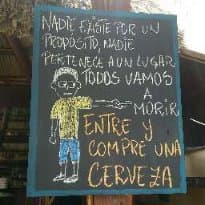 NADIE EXISTE POR UN
PROPOSITO, NADIE
PERTENECE A UN LUGAR
TODOS VAMOS
A
MORIR
ENTRE Y
COMPRE UNA
CERVEZA